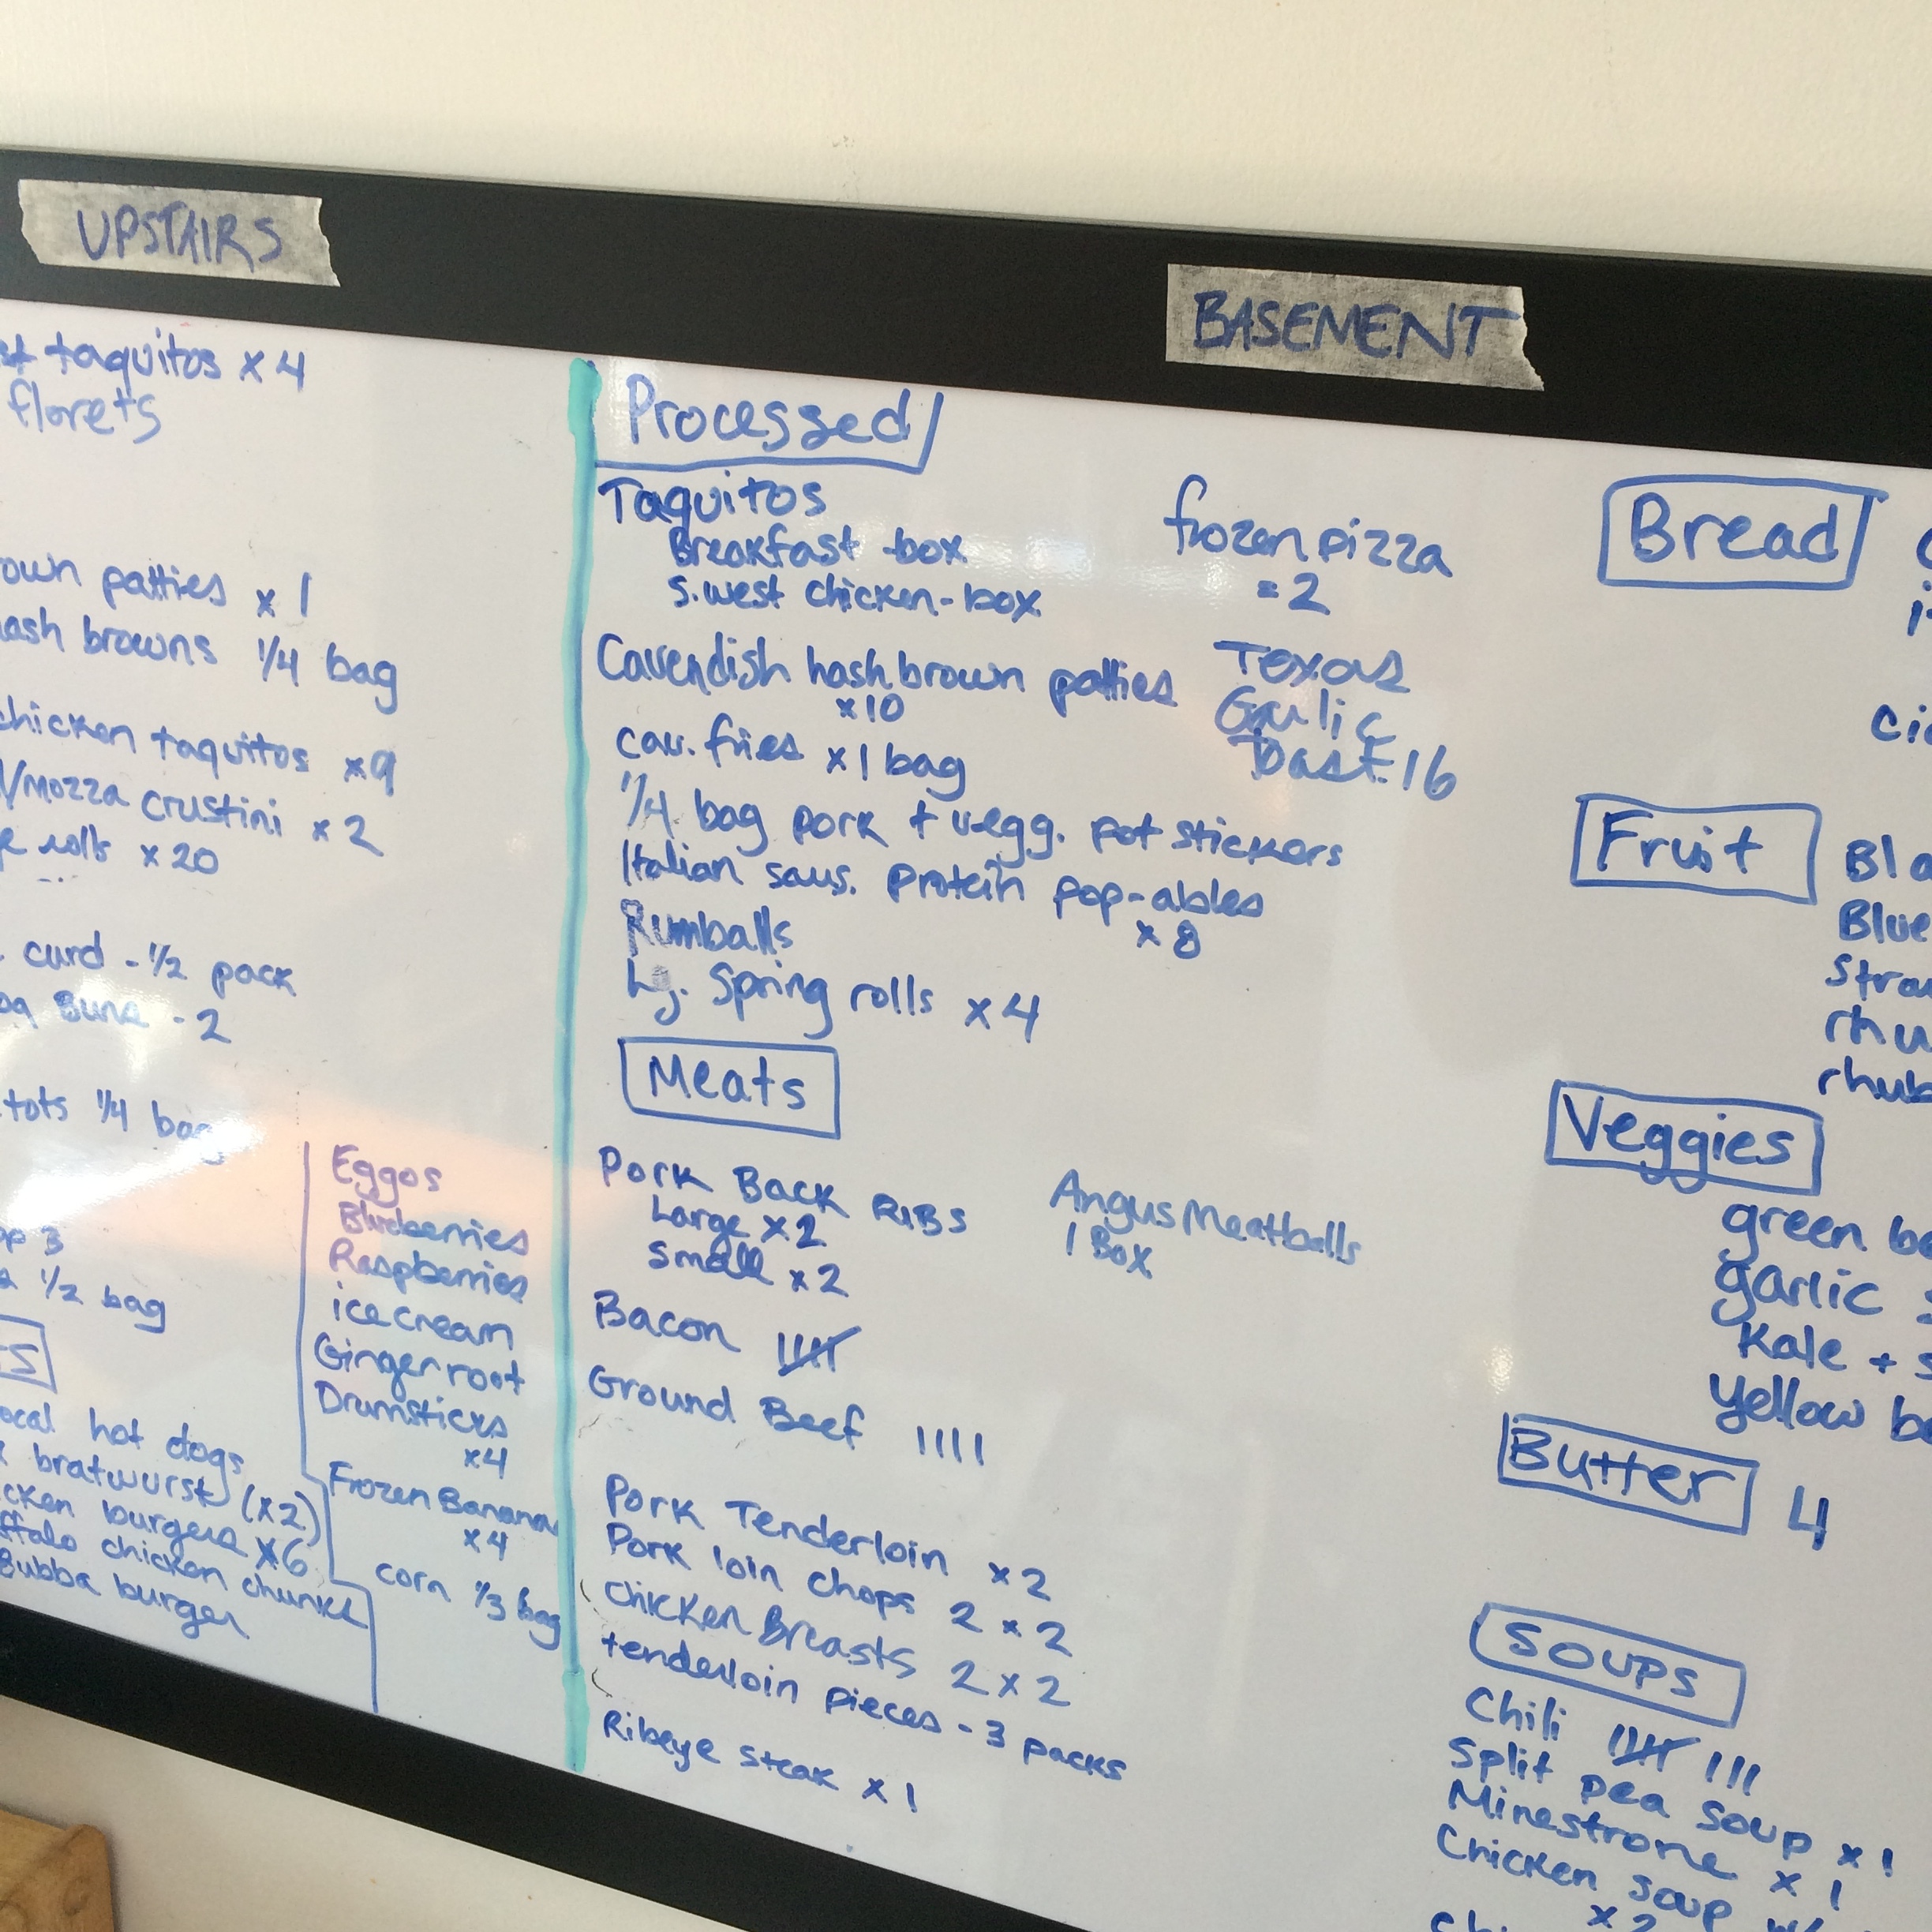 UPSTAIRS
taquitos x 4
florets
patties x 1
browns 1/4 bag
chicken taquitos x9
/mozza crustini x 2
rolls x 20
curd - 1/2 pack
Buns - 2
tots 1/4 bag
3
1/2 bag
hot dogs
bratwurst (x2)
burgers x6
chicken chunks
Bubba burger
Eggos
Blueberries
Raspberries
ice cream
Ginger root
Drumsticks
x4
Frozen Banana
x4
corn 1/3 bag
BASEMENT
Processed
Taquitos
Breakfast - box
S.west chicken - box
Cavendish hashbrown patties
x10
cav. fries x 1 bag
1/4 bag pork + vegg. pot stickers
Italian saus. protein pop-ables
x 8
Rumballs
Lg. Spring rolls x 4
frozen pizza
= 2
Texas
Garlic
Toast 16
Meats
Pork Back Ribs
Large x 2
Small x 2
Angus Meatballs
1 Box
Bacon 卌
Ground Beef ||||
Pork Tenderloin x 2
Pork loin chops 2 x 2
Chicken Breasts 2 x 2
tenderloin pieces - 3 packs
Ribeye steak x 1
Bread
Fruit
Blue
rhu
rhub
Veggies
green be
garlic
Kale +
yellow be
Butter 4
SOUPS
Chili 卌 |||
Split pea soup x 1
Minestrone x 1
Chicken soup w/
x 2